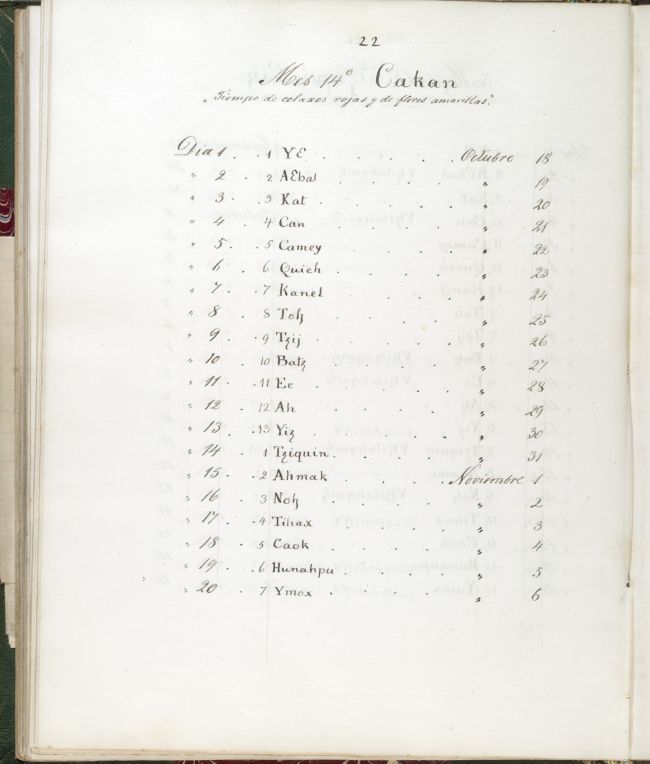 22
Mes 14° Cakan
"Tiempo de celaxes rojas y de flores amarillas."
Dia 1. . 1 YƐ . . . . . Octubre 18
" 2 . 2 AƐbal . . . . " 19
" 3 . 3 Kat . . . . " 20
" 4 . 4 Can . . . . " 21
" 5 . 5 Camey . . . . " 22
" 6 . 6 Quieh . . . . " 23
" 7 . 7 Kanel . . . . " 24
" 8 . 8 Toh . . . . " 25
" 9 . 9 Tzij . . . . " 26
" 10 . 10 Batz . . . . " 27
" 11 . 11 Ee . . . . " 28
" 12 . 12 Ah . . . . " 29
" 13 . 13 Yiz . . . . " 30
" 14 1 Tziquin . . . . " 31
" 15 . 2 Ahmak . . . . Noviembre 1
" 16 . 3 Noh . . . . " 2
" 17 . 4 Tihax . . . . " 3
" 18 . 5 Caok . . . . " 4
" 19 . 6 Hunahpu . . . . " 5
" 20 . 7 Ymox . . . . " 6